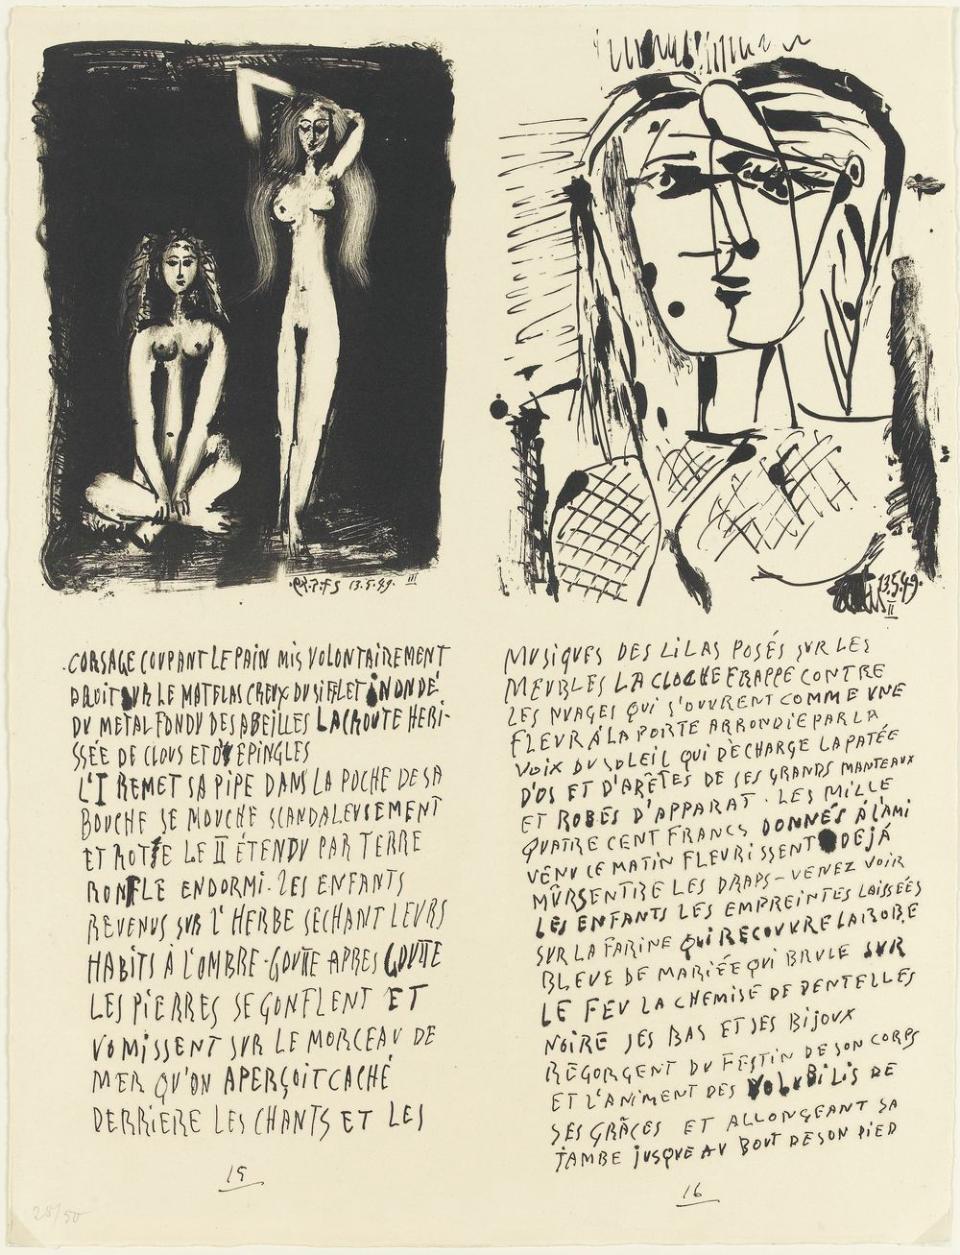 13.5.49. III
CORSAGE COUPANT LE PAIN MIS VOLONTAIREMENT
DROIT SUR LE MATELAS CREUX DU SIFFLET INONDÉ
DU METAL FONDU DES ABEILLES LA CROUTE HERI-
SSÉE DE CLOUS ET D'EPINGLES
L'I REMET SA PIPE DANS LA POCHE DE SA
BOUCHE SE MOUCHE SCANDALEUSEMENT
ET ROTTE LE II ÉTENDU PAR TERRE
RONFLE ENDORMI. LES ENFANTS
REVENUS SUR L'HERBE SECHANT LEURS
HABITS À L'OMBRE - GOUTTE APRES GOUTTE
LES PIERRES SE GONFLENT ET
VOMISSENT SUR LE MORCEAU DE
MER QU'ON APERÇOIT CACHÉ
DERRIERE LES CHANTS ET LES
15
28/50
13.5.49.
II
MUSIQUES DES LILAS POSÉS SUR LES
MEUBLES LA CLOCHE FRAPPE CONTRE
LES NUAGES QUI S'OUVRENT COMME UNE
FLEUR À LA PORTE ARRONDIE PAR LA
VOIX DU SOLEIL QUI DÈCHARGE LA PATÉE
D'OS ET D'ARÊTES DE SES GRANDS MANTEAUX
ET ROBES D'APPARAT. LES MILLE
QUATRE CENT FRANCS DONNÉS À L'AMI
VENU CE MATIN FLEURISSENT DEJÁ
MÛRS ENTRE LES DRAPS - VENEZ VOIR
LES ENFANTS LES EMPREINTES LAISSÉES
SUR LA FARINE QUI RECOUVRE LA ROBE
BLEUE DE MARIÉE QUI BRULE SUR
LE FEU LA CHEMISE DE DENTELLES
NOIRE SES BAS ET SES BIJOUX
REGORGENT DU FESTIN DE SON CORPS
ET L'ANIMENT DES VOLUBILIS DE
SES GRÂCES ET ALLONGEANT SA
JAMBE JUSQUE AU BOUT DE SON PIED
16